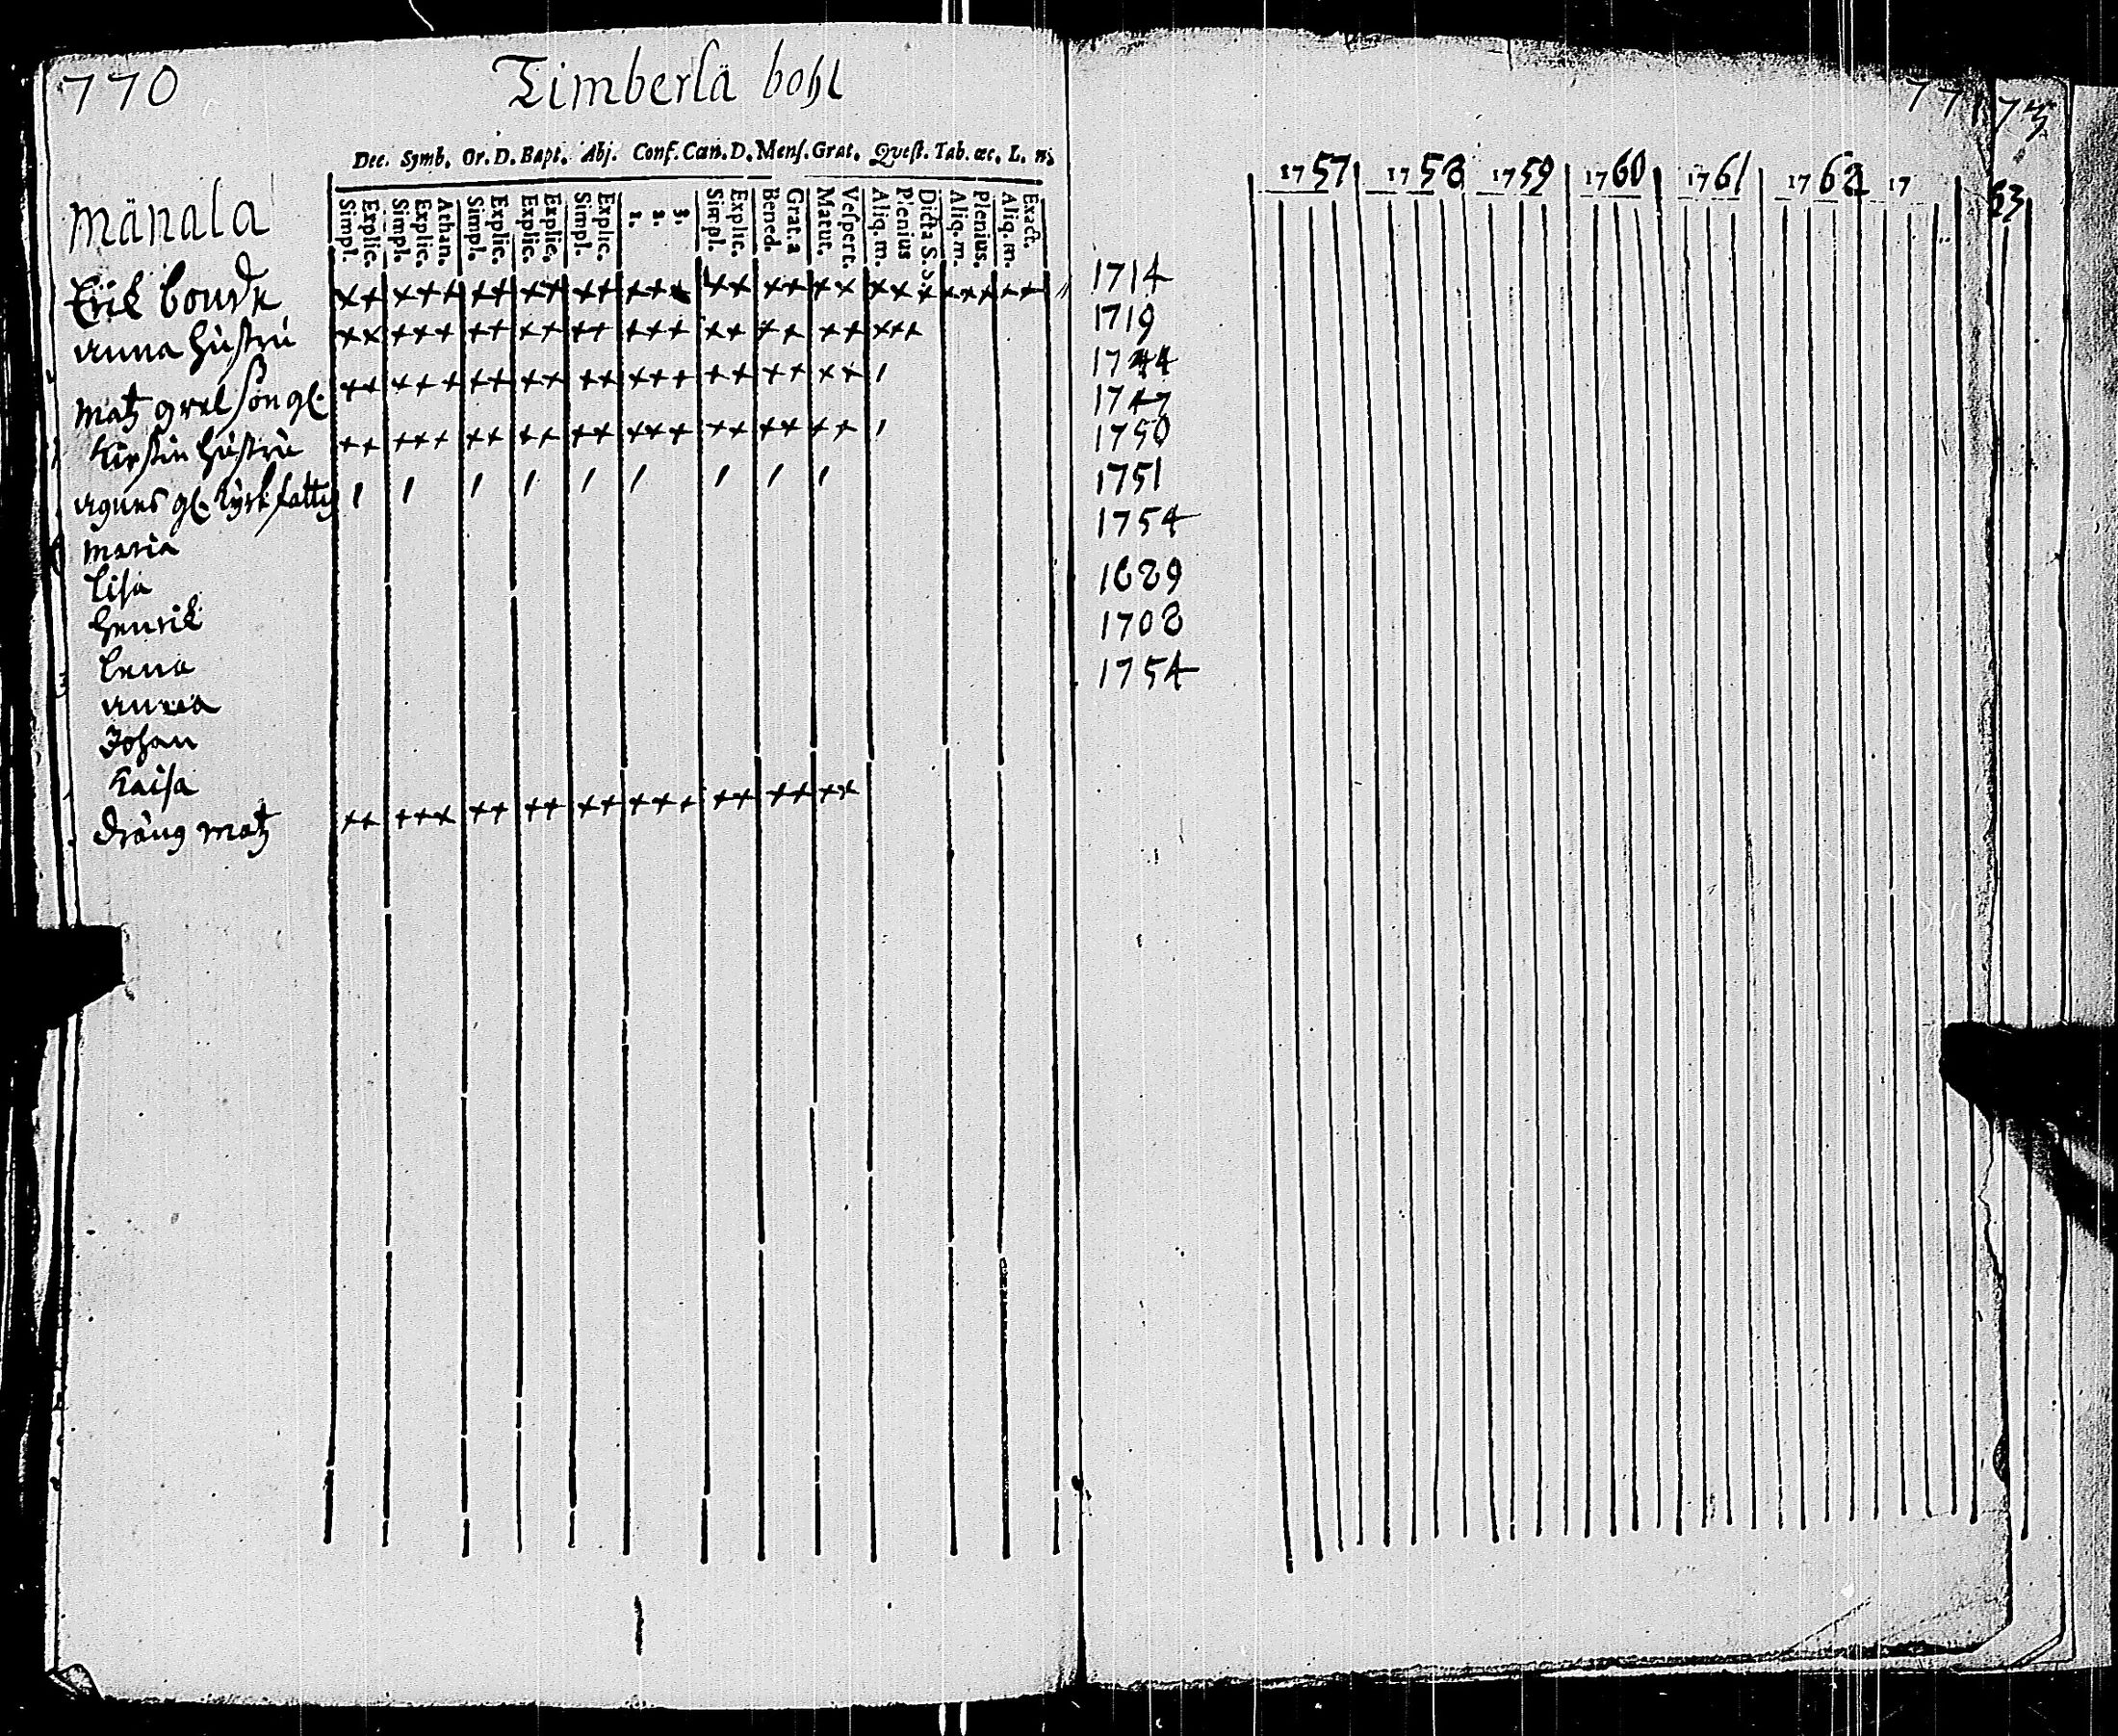 770
Timberlä bohl
Dec. Symb. Or. D. Bapt. Abj. Conf. Cœn. D. Mens. Grat. Qvest. Tab. œc. L. n.
Simpl. Explic. Simpl. Explic. Athan. Simpl. Explic. Explic. Explic. Simpl. Explic. 1. 2. 3. Simpl. Explic. Bened. Grat. a Matut. Vespert. Aliq. m. Plenius Dicta S. S. Aliq. m. Plenius. Aliq. m. Exact.
Mänala
Erik bonde
Anna hustru
Matz son gl.
Kirstin hustru
Agnes gl. kyrk fattig
Maria
Lisa
Henrik
Lena
Anna
Johan
Kaisa
dräng Matz
771
73
1757 1758 1759 1760 1761 1762 17 63
1714
1719
1744
1747
1750
1751
1754
1689
1708
1754